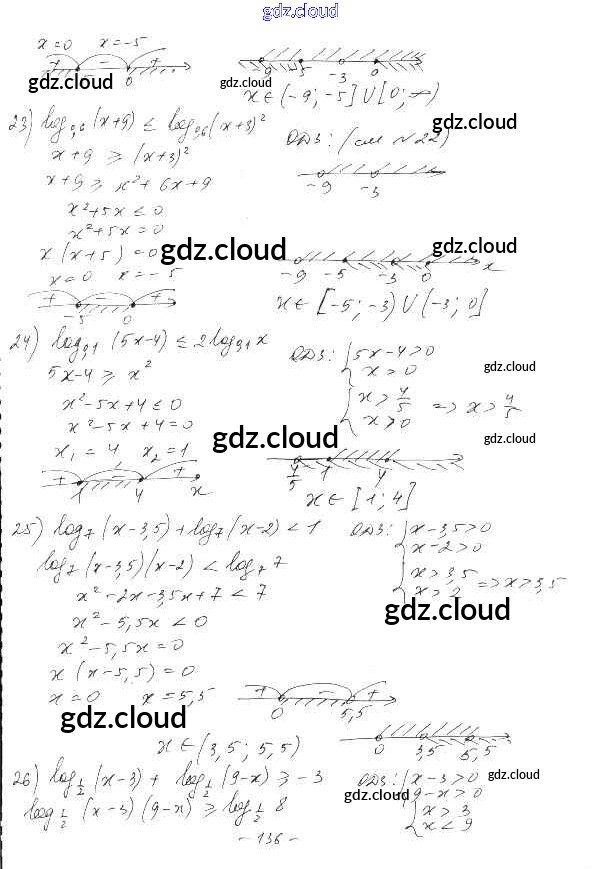 gdz.cloud
x=0 x=-5
+ - + -5 0
-9 -5 -3 0
gdz.cloud gdz.cloud
x∈(-9; -5]∪[0; ∞)
gdz.cloud
23) log₀,₆(x+9) ≤ log₀,₆(x+3)² ОДЗ: (см. №22)
x+9 ≥ (x+3)²
x+9 ≥ x²+6x+9
-9 -3
x²+5x ≤ 0
x²+5x=0
x(x+5)=0 gdz.cloud gdz.cloud
x=0 x=-5
-9 -5 -3 0 x
+ - + -5 0
x∈[-5; -3)∪(-3; 0]
24) log₀,₁(5x-4) ≤ 2log₀,₁x ОДЗ: {5x-4>0
x>0 gdz.cloud
5x-4 ≥ x²
x²-5x+4 ≤ 0 {x>4/5
x>0 => x>4/5
x²-5x+4=0
x₁=4 x₂=1 gdz.cloud gdz.cloud
+ - + 1 4 x
4/5 1 4
x∈[1; 4]
25) log₇(x-3,5)+log₇(x-2)<1 ОДЗ: {x-3,5>0
x-2>0
log₇(x-3,5)(x-2)<log₇7
x²-2x-3,5x+7<7 {x>3,5
x>2 => x>3,5
gdz.cloud
x²-5,5x<0
x²-5,5x=0
x(x-5,5)=0
x=0 x=5,5
+ - + 0 5,5
gdz.cloud
0 3,5 5,5
x∈(3,5; 5,5) gdz.cloud
26) log½(x-3)+log½(9-x) ≥ -3 ОДЗ: {x-3>0
9-x>0
gdz.cloud gdz.cloud
log½(x-3)(9-x) ≥ log½8 {x>3
x<9
-136-